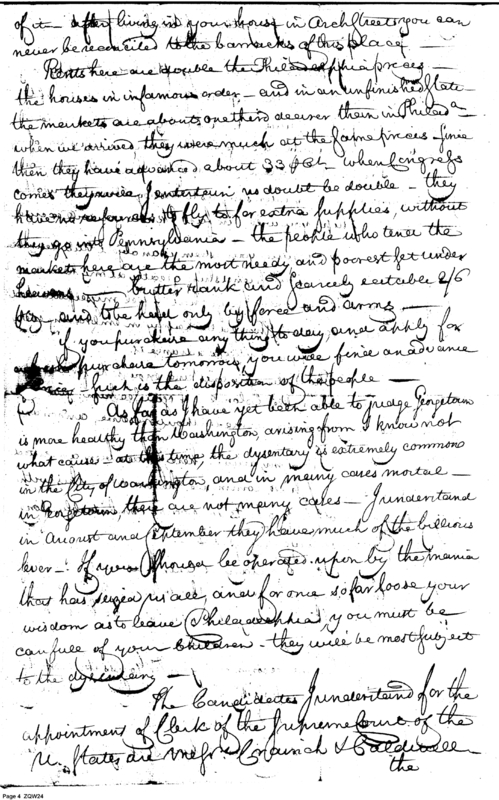 of it - after living in your house in Arch Street you can
never be reconciled to the barracks of this place —
Rents here are double the Philadelphia prices —
the houses in infamous order - and in an unfinished state -
the markets are about one third dearer than in Philada
when we arrived they were much at the same prices - since
then they have advanced about 33 pCt. when Congress
comes they will I entertain no doubt be double - they
have no to fly to for extra supplies, without
they go into Pennsylvania - the people who tend the
markets here are the most needy and poorest set under
heavens — butter rank and scarcely eatable 2/6
and to be had only by force and arms —
if you purchase any thing to day, and apply for
purchase tomorrow, you will find an advance
such is the disposition of the people —
As far as I have yet been able to judge Georgetown
is more healthy than Washington, arising from I know not
what cause - at this time, the dysentary is extremely common
in the City of Washington, and in many cases mortal —
in Georgetown, there are not many cases — I understand
in August and September they have much of the billious
fever - If you should be operated upon by the mania
that has seized us all, and for once so far loose your
wisdom as to leave Philadelphia, you must be
careful of your Children - they will be most subject
to the dysentary —
The Candidates I understand for the
appointment of Clerk of the Supreme Court of the
U. States are Messrs Cranch & Caldwell —
the
Page 4 ZQW24